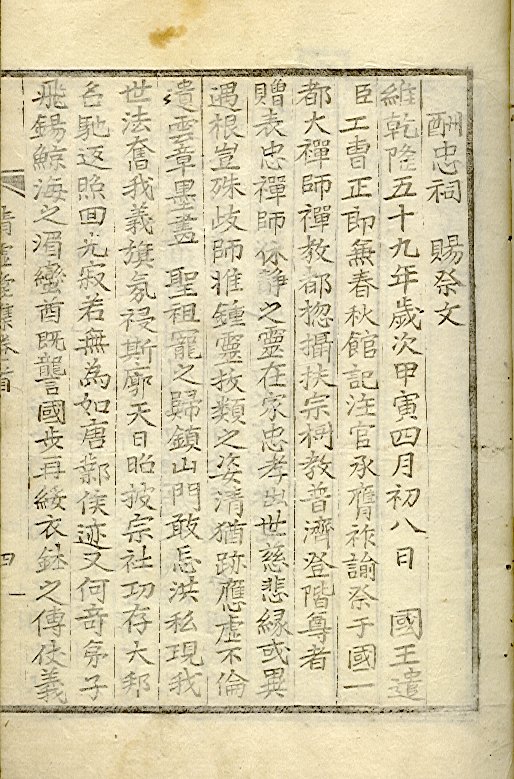 酬忠祠　賜祭文
維乾隆五十九年歲次甲寅四月初八日　國王遣
臣工曹正郎兼春秋館記注官承膺祚諭祭于國一
都大禪師禪教都摠攝扶宗樹教普濟登階尊者
贈表忠禪師休靜之靈在家忠孝出世慈悲緣或異
遇根豈殊歧師惟鍾靈拔類之姿清猶跡應虛不倫
遺雲章墨畫　聖祖寵之歸鎖山門敢忘洪私現我
世法奮我義旗氛祲斯廓天日昭披宗社功存大邦
名馳返照回光寂若無為如唐鄴侯迹又何奇弟子
飛錫鯨海之湄蠻酋既讋國步再綏衣鉢之傳使義
清虛堂集卷首　四